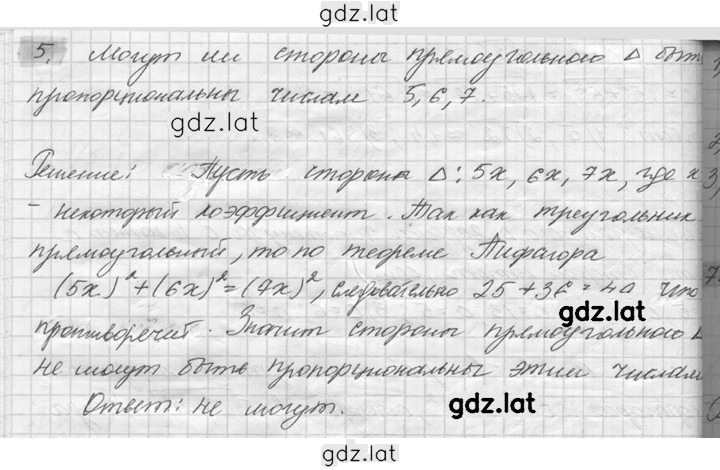 gdz.lat
5. Могут ли стороны прямоугольного Δ быть
пропорциональны числам 5, 6, 7.
gdz.lat
Решение: Пусть стороны Δ: 5x, 6x, 7x, где x
- некоторый коэффициент. Так как треугольник
прямоугольный, то по теореме Пифагора
(5x)² + (6x)² = (7x)², следовательно 25 + 36 = 49 что
gdz.lat
противоречит. Значит стороны прямоугольного Δ
не могут быть пропорциональны этим числам
Ответ: не могут.
gdz.lat
gdz.lat